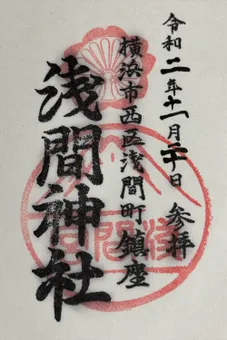 令和二年十一月二十日 参拝
横浜市西区浅間町鎮座
浅間神社